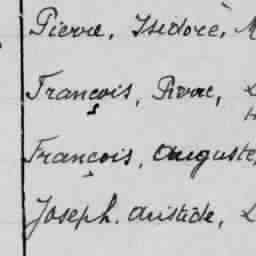 Pierre, Isidore, M
François, Pierre,
François, Auguste,
Joseph. Aristide, L